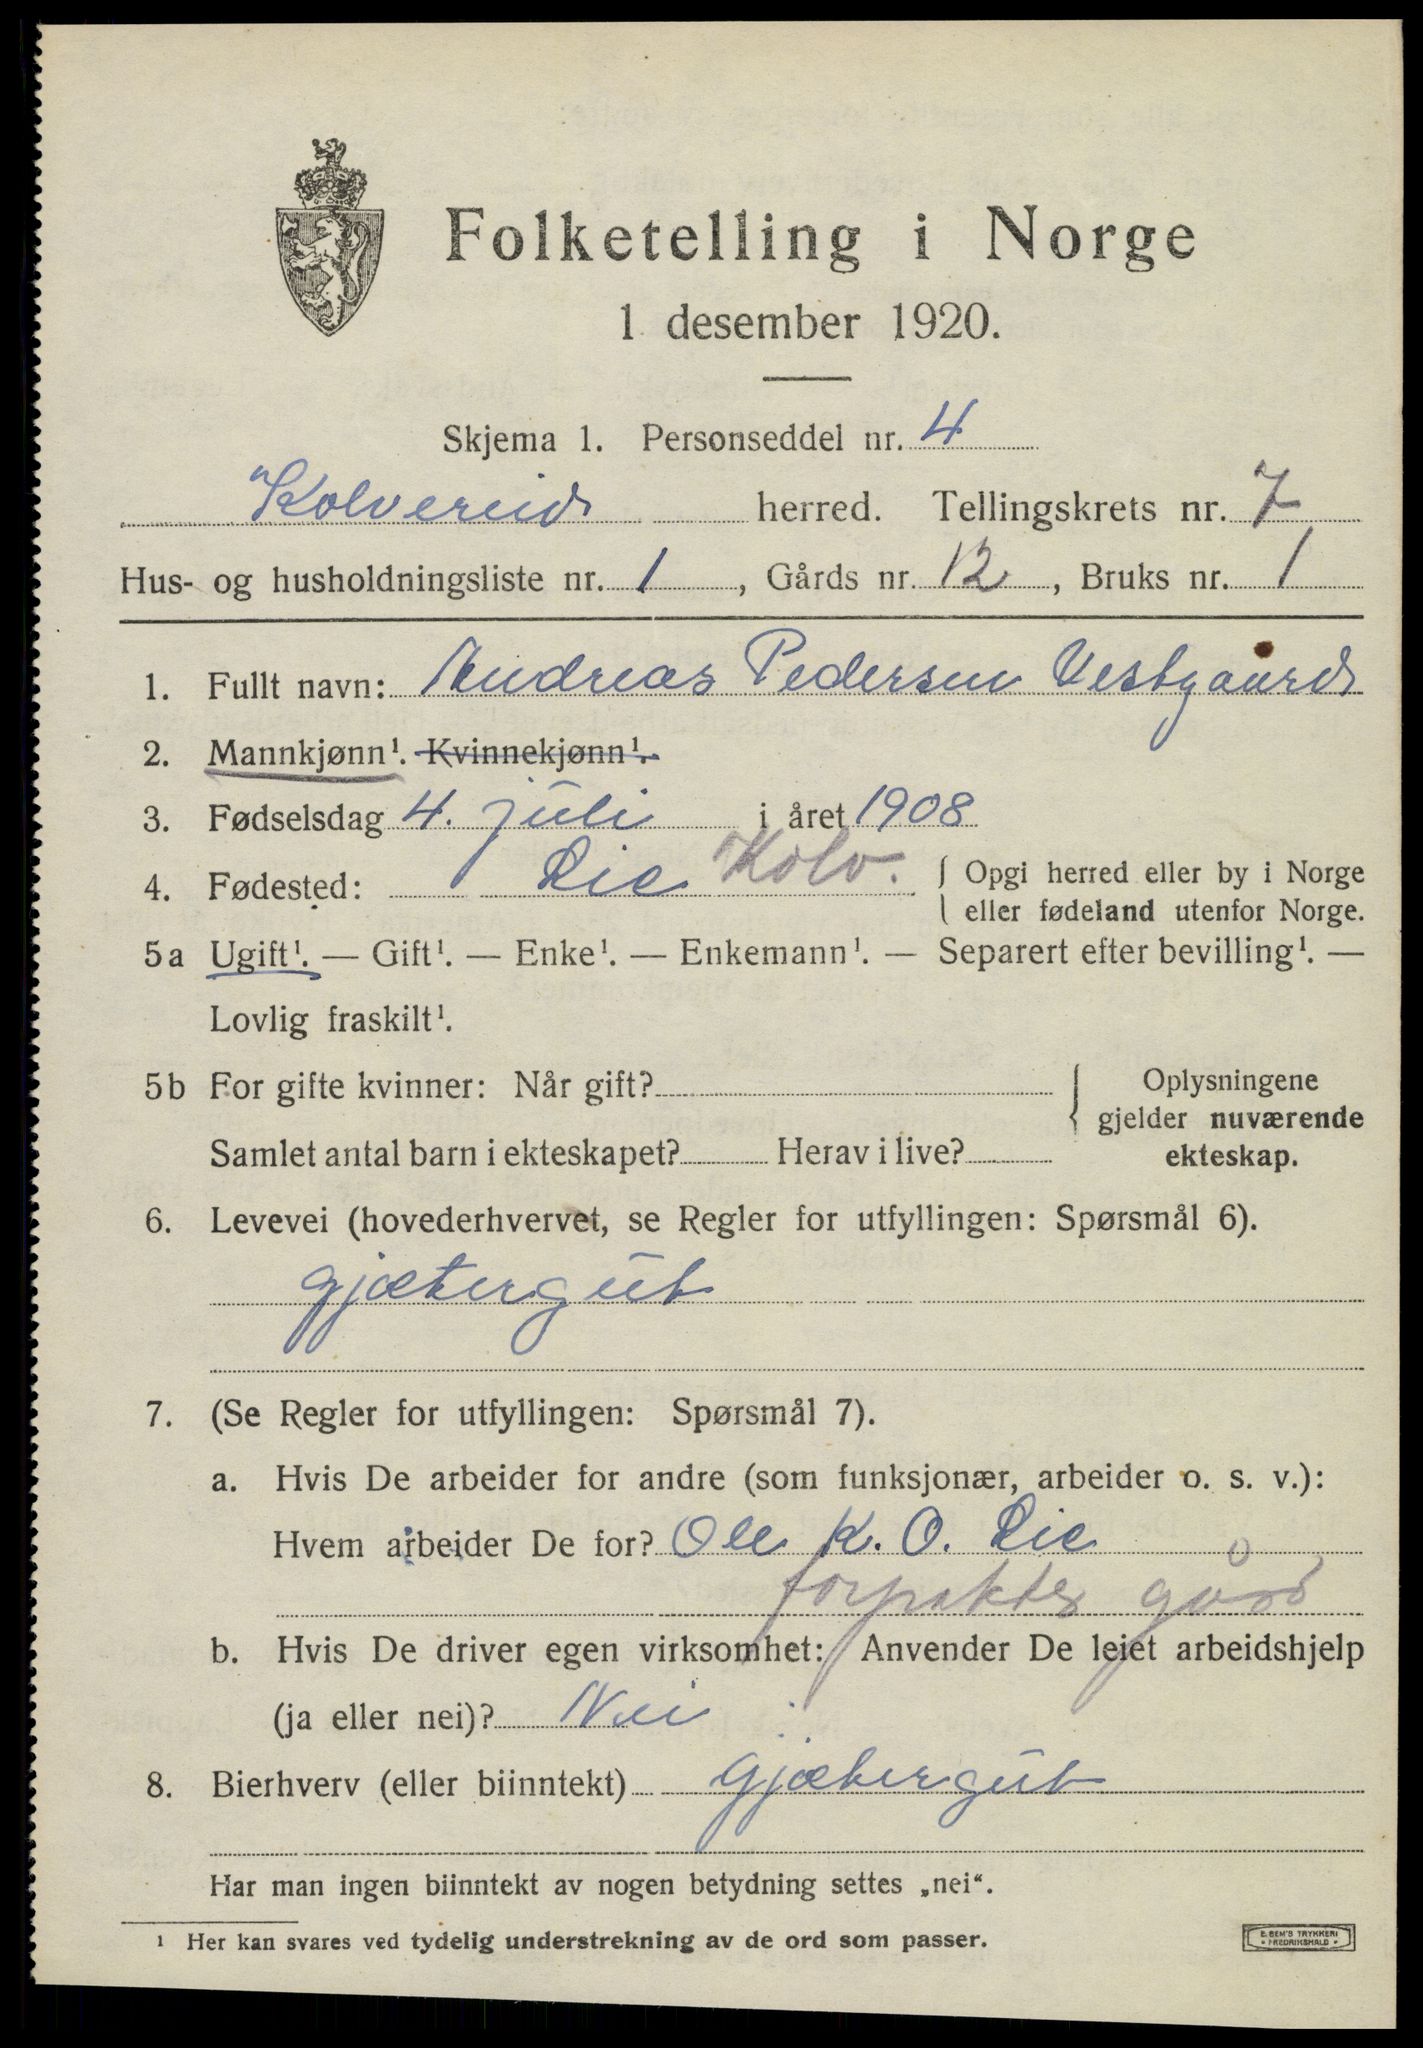 Folketelling i Norge
1 desember 1920.
Skjema 1. Personseddel nr. 4
Kolvereid herred. Tellingskrets nr. 7
Hus- og husholdningsliste nr. 1, Gårds nr. 12, Bruks nr. 1
1. Fullt navn: Andreas Pedersen Vestgaard
2. Mannkjønn¹. Kvinnekjønn¹.
3. Fødselsdag 4. juli i året 1908
4. Fødested: Lie Kolv. { Opgi herred eller by i Norge
eller fødeland utenfor Norge.
5a Ugift¹. — Gift¹. — Enke¹. — Enkemann¹. — Separert efter bevilling¹. —
Lovlig fraskilt¹.
5b For gifte kvinner: Når gift? { Oplysningene
gjelder nuværende
Samlet antal barn i ekteskapet? Herav i live? ekteskap.
6. Levevei (hovederhvervet, se Regler for utfyllingen: Spørsmål 6).
gjætergut
7. (Se Regler for utfyllingen: Spørsmål 7).
a. Hvis De arbeider for andre (som funksjonær, arbeider o. s. v.):
Hvem arbeider De for? Ole K. O. Lie
forpakter gård
b. Hvis De driver egen virksomhet: Anvender De leiet arbeidshjelp
(ja eller nei)? Nei
8. Bierhverv (eller biinntekt) gjætergut
Har man ingen biinntekt av nogen betydning settes „nei“.
¹ Her kan svares ved tydelig understrekning av de ord som passer.
E. SEM'S TRYKKERI
• FREDRIKSHALD •